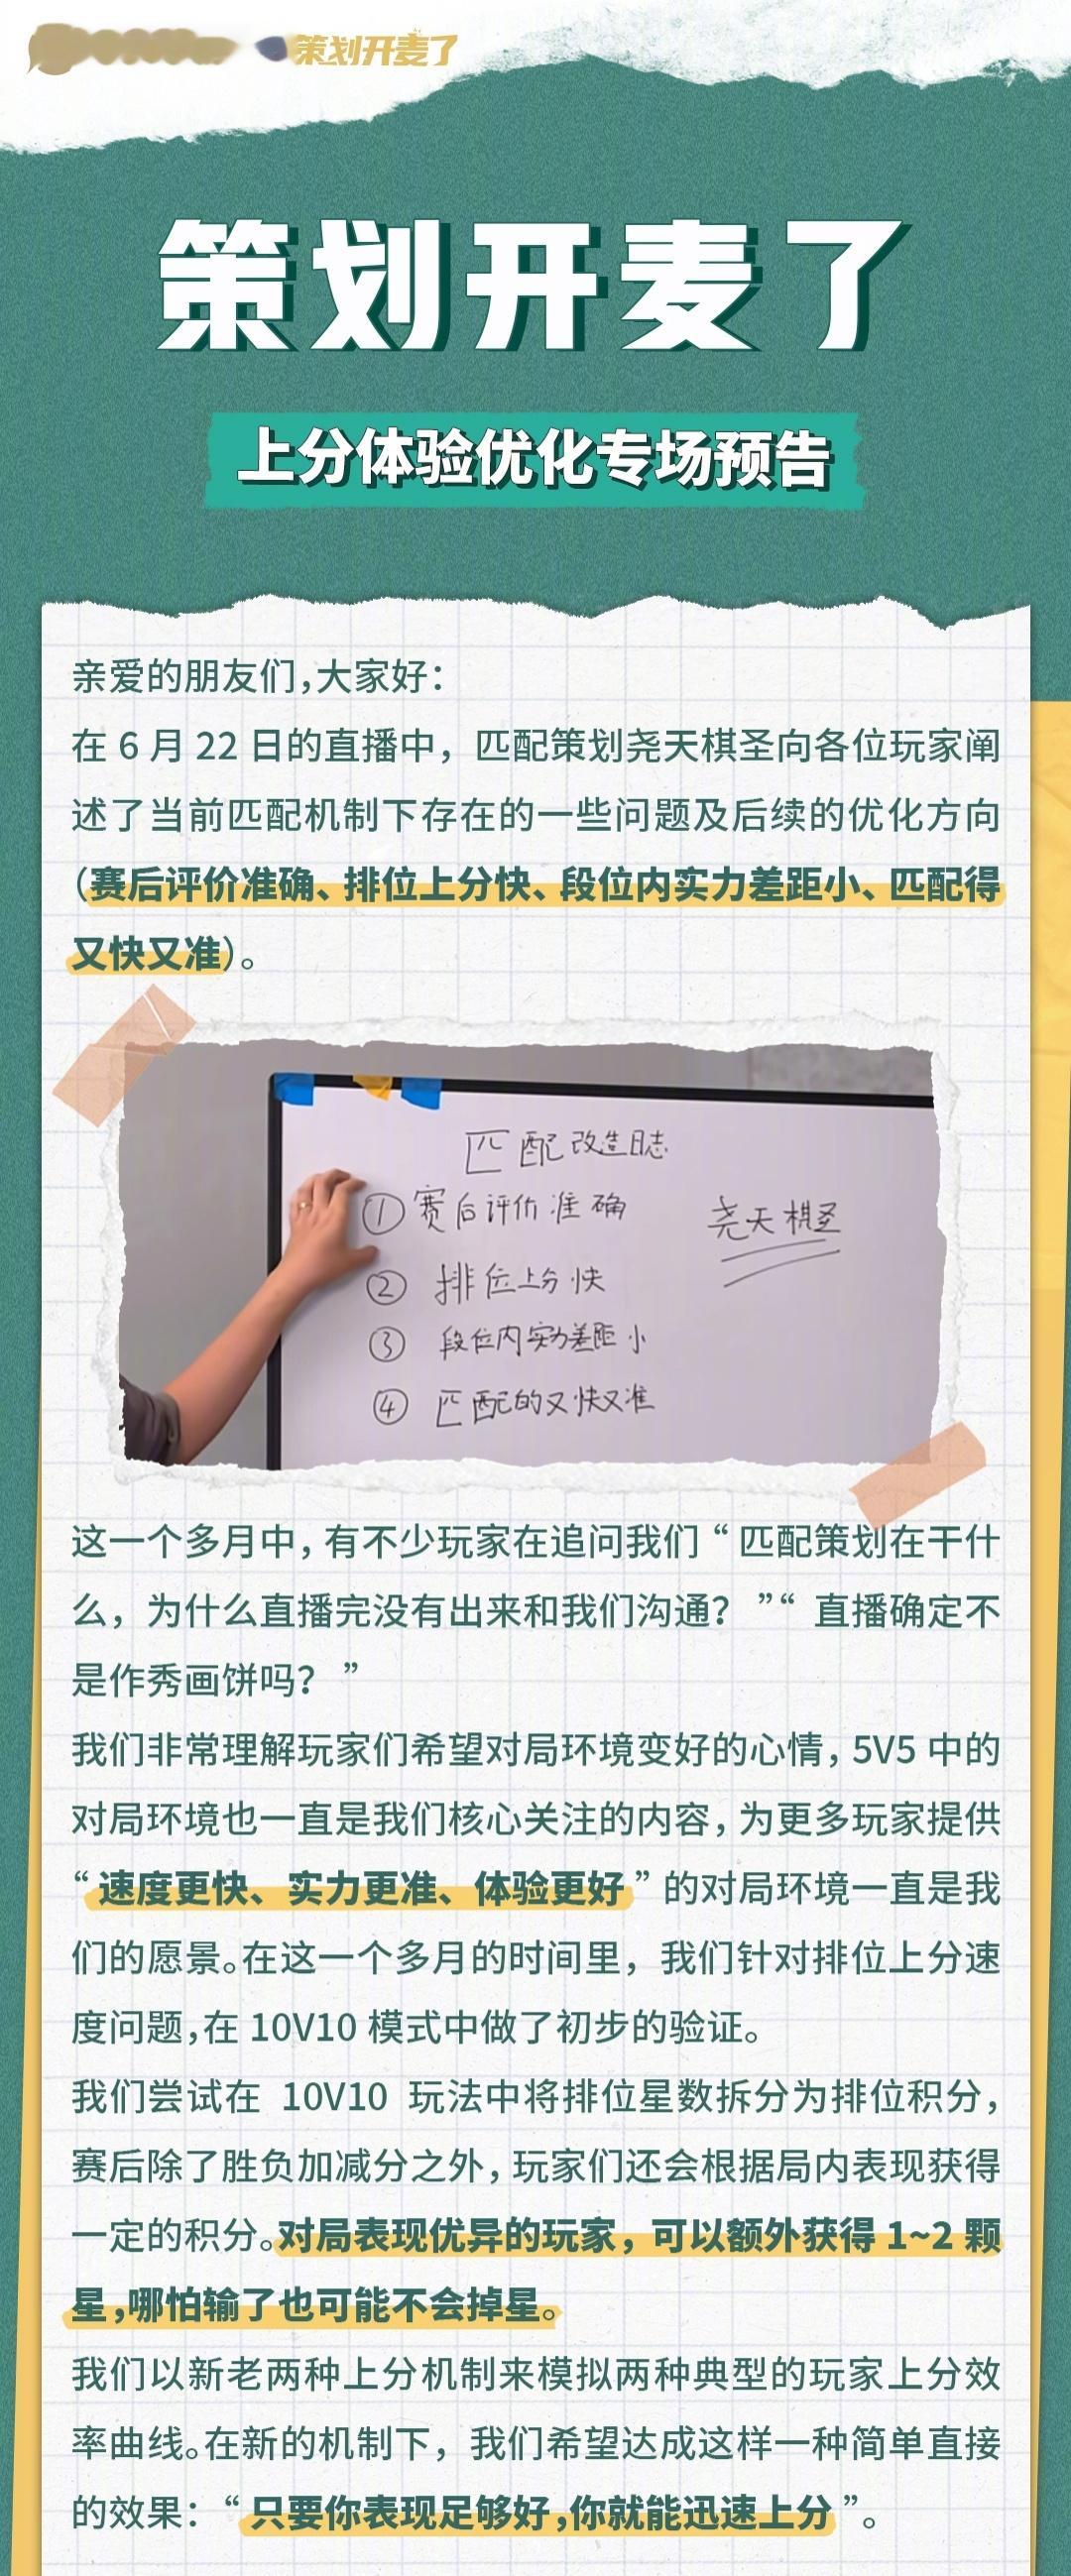 策划开麦了
策划开麦了
上分体验优化专场预告
亲爱的朋友们，大家好：
在 6 月 22 日的直播中，匹配策划尧天棋圣向各位玩家阐
述了当前匹配机制下存在的一些问题及后续的优化方向
（赛后评价准确、排位上分快、段位内实力差距小、匹配得
又快又准）。
匹配改造日志
① 赛后评价准确
尧天棋圣
② 排位上分快
③ 段位内实力差距小
④ 匹配的又快又准
这一个多月中，有不少玩家在追问我们“匹配策划在干什
么，为什么直播完没有出来和我们沟通？”“直播确定不
是作秀画饼吗？”
我们非常理解玩家们希望对局环境变好的心情，5V5 中的
对局环境也一直是我们核心关注的内容，为更多玩家提供
“速度更快、实力更准、体验更好”的对局环境一直是我
们的愿景。在这一个多月的时间里，我们针对排位上分速
度问题，在 10V10 模式中做了初步的验证。
我们尝试在 10V10 玩法中将排位星数拆分为排位积分，
赛后除了胜负加减分之外，玩家们还会根据局内表现获得
一定的积分。对局表现优异的玩家，可以额外获得 1~2 颗
星，哪怕输了也可能不会掉星。
我们以新老两种上分机制来模拟两种典型的玩家上分效
率曲线。在新的机制下，我们希望达成这样一种简单直接
的效果：“只要你表现足够好，你就能迅速上分”。